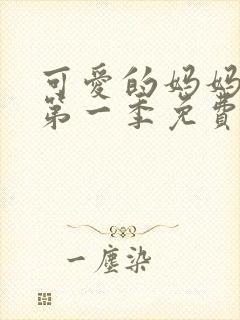 可愛的妈妈
第一季免費
一塵染